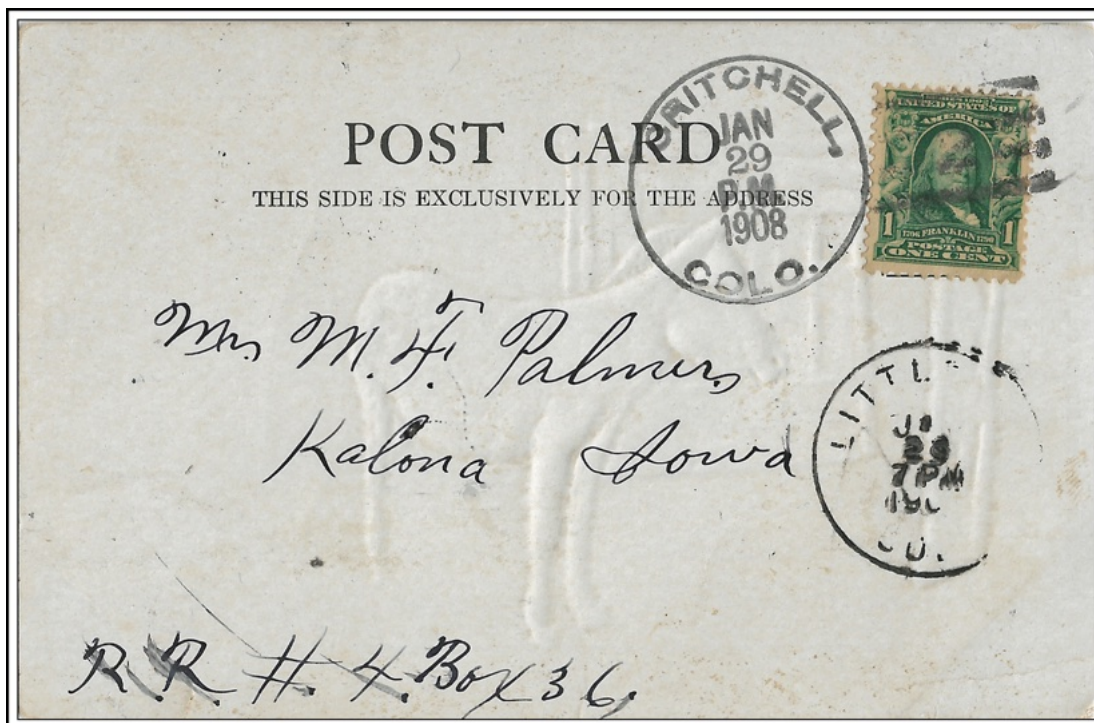 POST CARD
THIS SIDE IS EXCLUSIVELY FOR THE ADDRESS
CRITCHELL,
JAN
29
P.M.
1908
COLO.
UNITED STATES OF
AMERICA
1 1706 FRANKLIN 1790 1
POSTAGE
ONE CENT
Mrs M. F. Palmer,
Kalona Iowa
LITTL
29
7 PM
R. R. #. 4. Box 36,